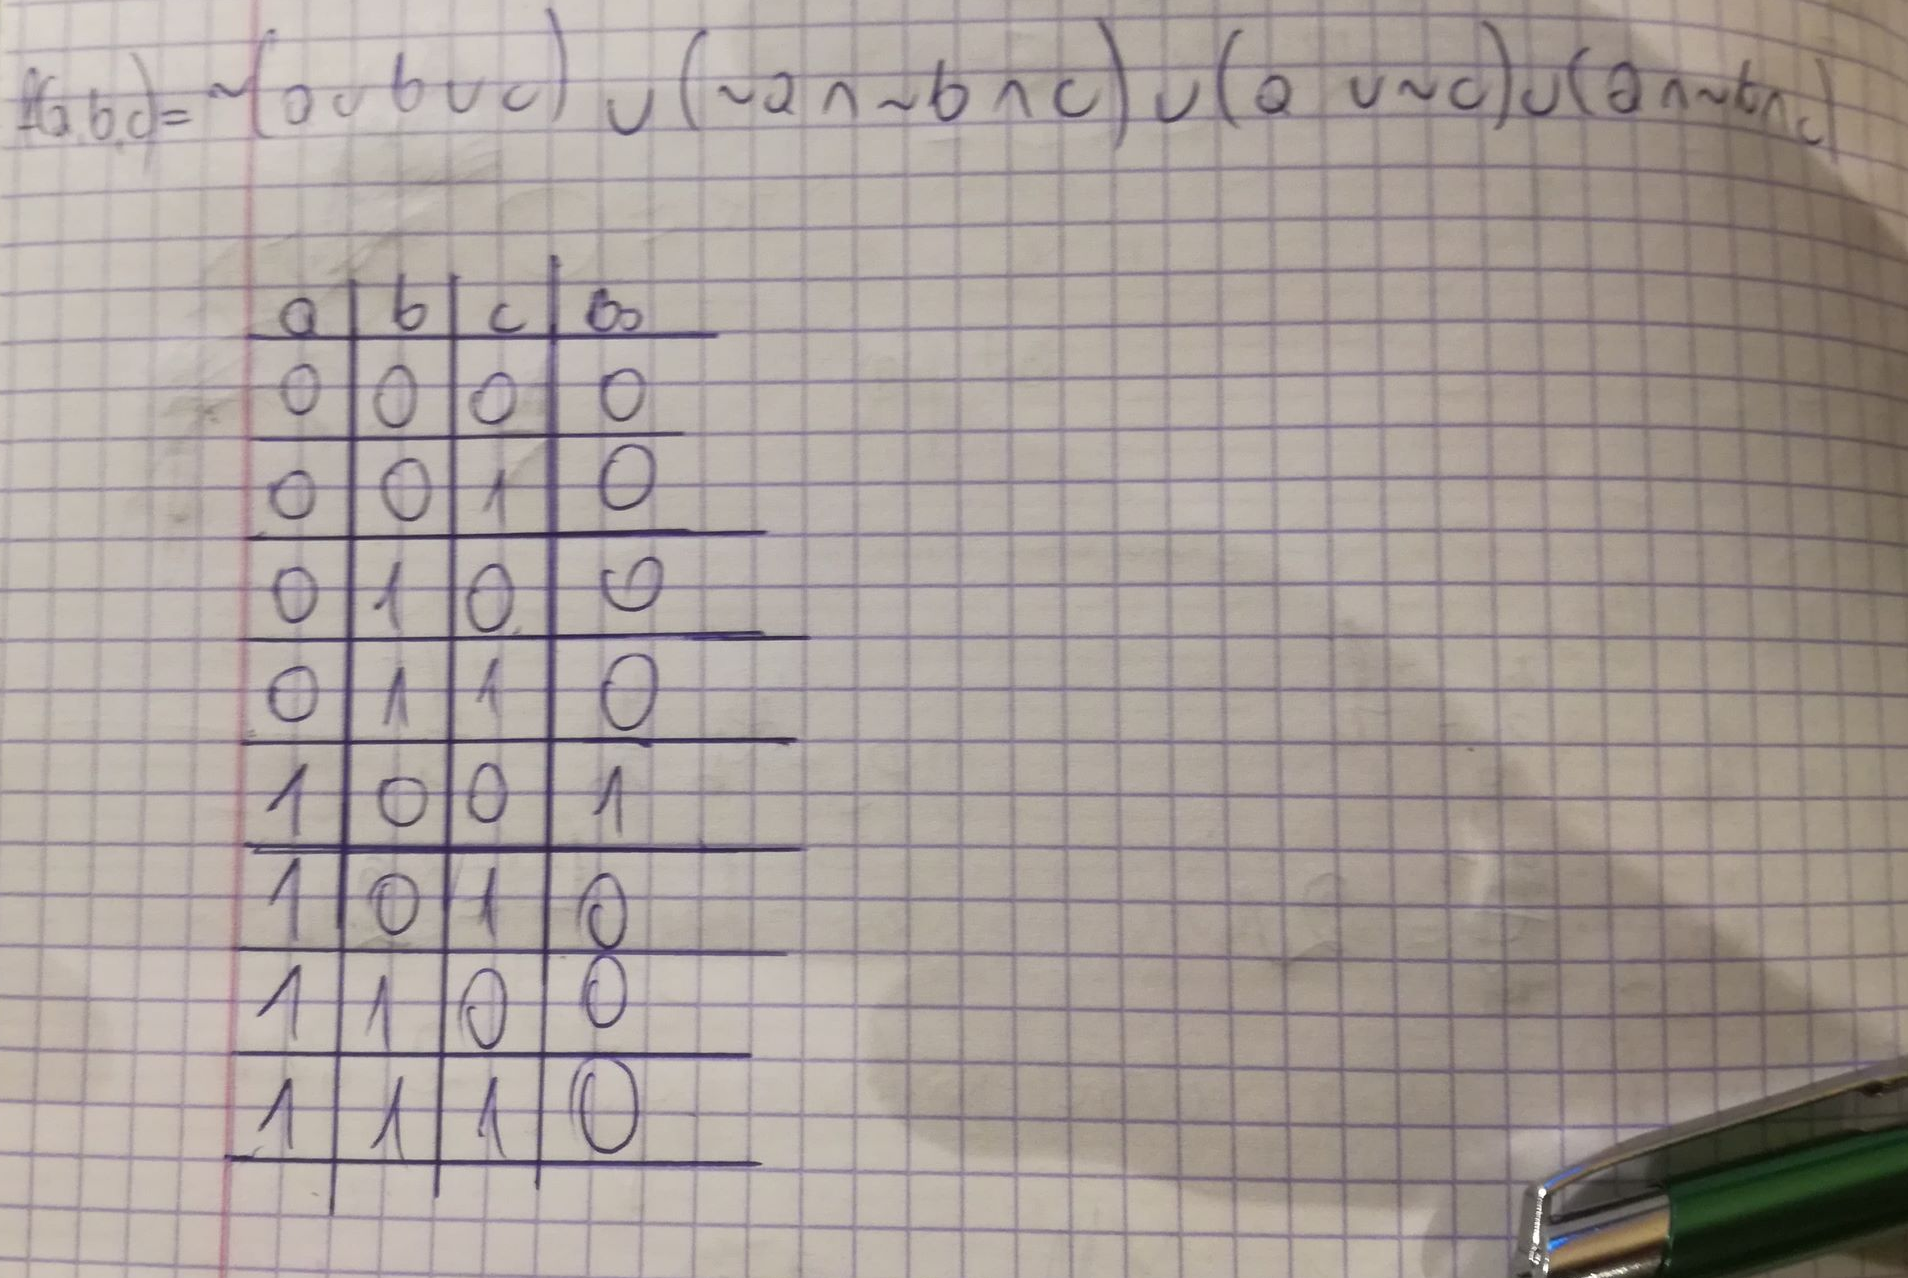 f(a,b,c)= ~(a ∪ b ∪ c) ∪ (~a ∩ ~b ∩ c) ∪ (a ∪ ~c) ∪ (a ∩ ~b ∩ c)
a b c
0 0 0 0
0 0 1 0
0 1 0 0
0 1 1 0
1 0 0 1
1 0 1 0
1 1 0 0
1 1 1 0